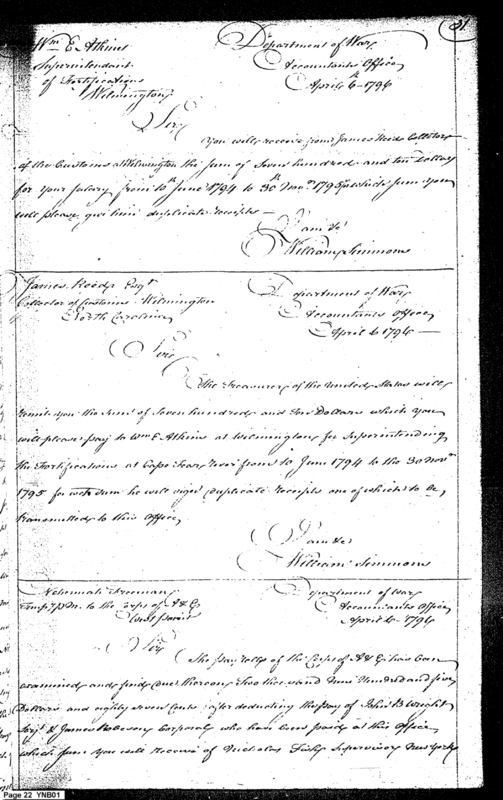 81
Wm E. Atkins
Superintendant
of Fortifications
Wilmington
Department of War
Accountants Office
April 6th 1796
Sir
You will receive from James Reeds Collector
of the Customs at Wilmington the sum of Seven hundred and ten Dollars
for your Salary from 10th June 1794 to 30th Novr 1795 for which sum you
will please give him duplicate receipts —
I am &c
William Simmons
James Reeds Esqr
Collector of Customs Wilmington
North Carolina
Department of War
Accountants Office
April 6 1796 —
Sir
The Treasurer of the United States will
remit you the sum of Seven hundred and Ten Dollars which you
will please pay to Wm E Atkins at Wilmington for Superintending
the Fortifications at Cape Fear River from 10 June 1794 to the 30 Novr
1795 for wch sum he will sign duplicate receipts one of which to be
transmitted to this Office
I am &c
William Simmons
Nehemiah Freeman
to the Corps of A & E
West Point
Department of War
Accountants Office
April 6 1796
Sir
The Pay Rolls of the Corps of A & E has been
examined and find due thereon Two thousand Nine Hundred and five
Dollars and eighty seven Cents after deducting the pay of John B Wright
Serjt & James Roberson Corporal who have been paid at this Office
which sum you will receive of Nicholas Fish Supervisor New York
Page 22 YNB01